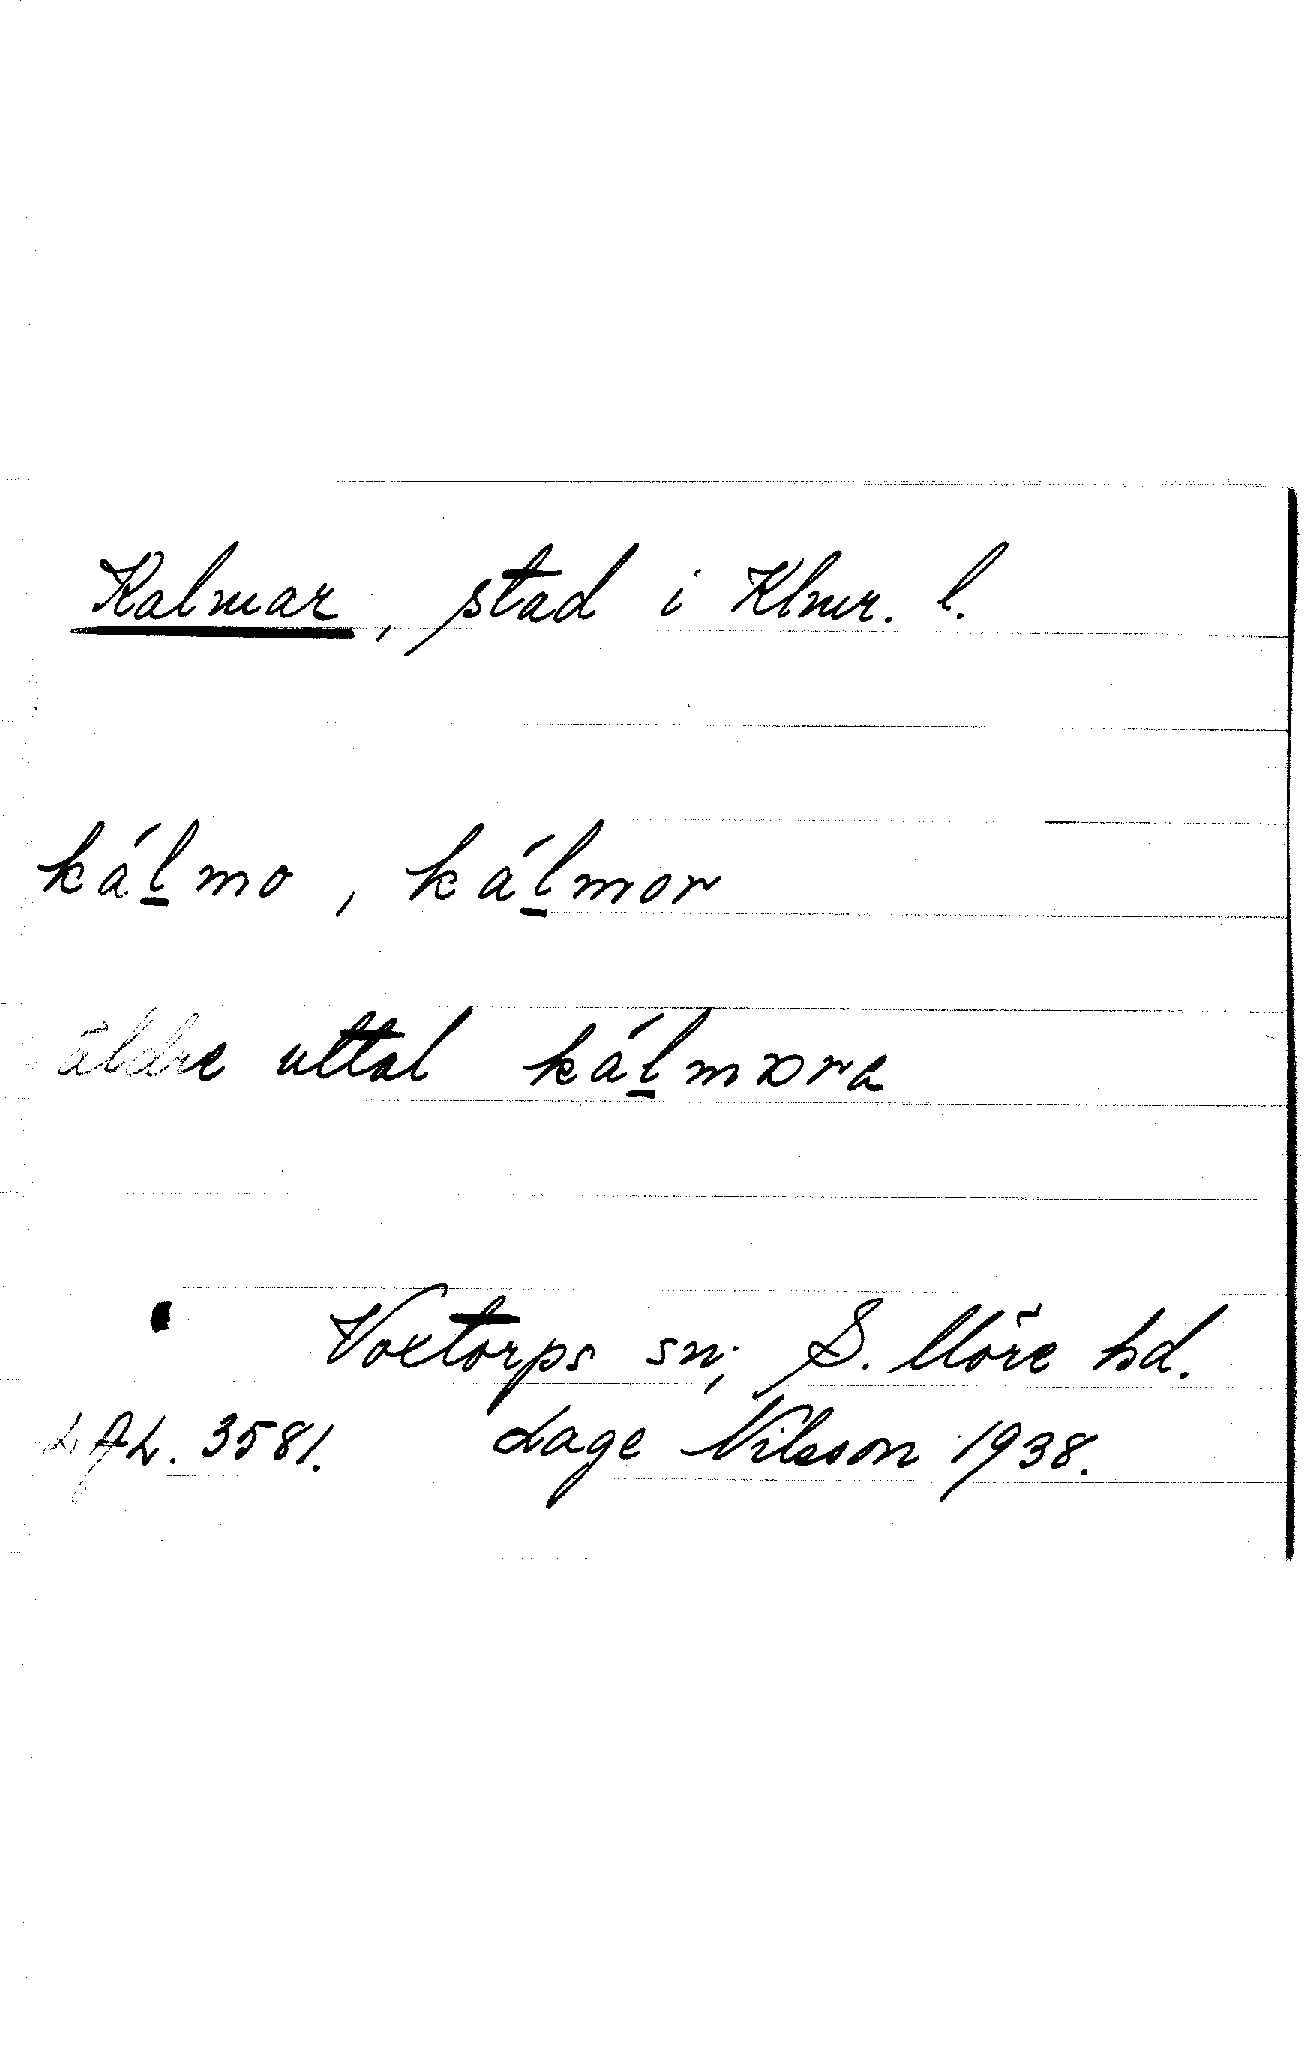 Kalmar, stad i Klmr. l.
ká̱lmo, ká̱lmor
äldre uttal ká̱lmɔra
Voxtorps sn; S. Möre hd.
LAL. 3581. Lage Nilsson 1938.